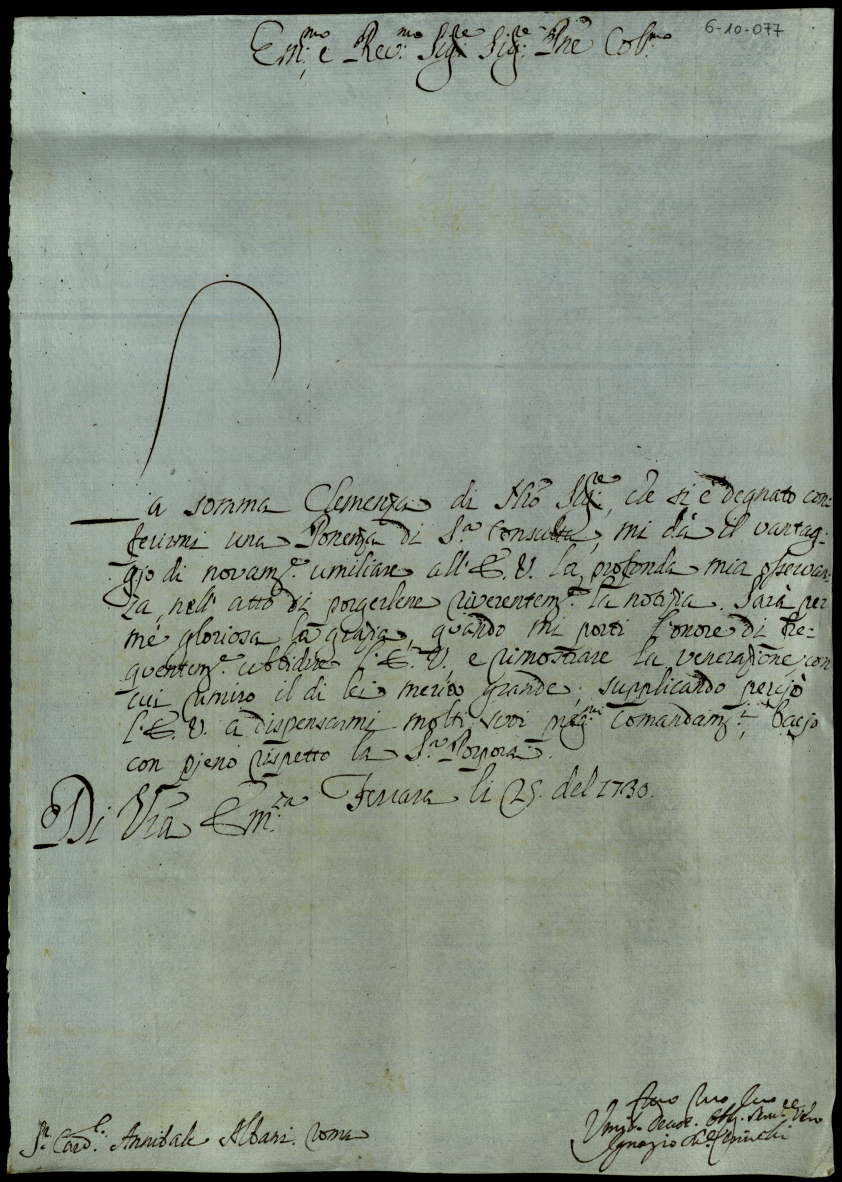 6-10-077
Em.mo e Rev.mo Sig.re Sig.re Pne Col.mo
La somma Clemenza di Nro Sig.re, che si è degnato con-
ferirmi una Ponenza di S.a Consulta, mi dà il vantag-
gio di novam.te umiliare all' E. V. la profonda mia osservan-
za, nell' atto di porgerlene riverentem.te la notizia. Sarà per
me gloriosa la grazia, quando mi porti l'onore di fre-
quentem.te ubbidire l' E. V., e rimostrare la venerazione con
cui rimiro il di lei merito grande; supplicando perciò
l' E. V. a dispensarmi molti suoi pregi.mi comandam.ti, bacio
con pieno rispetto la S.ra Porpora.
Di Vra Em.za Ferrara li 25. del 1730.
S.r Card.l Annibale Albani. Roma
Umiliss. Devot. Obl. Serv.re Vero
Ignazio